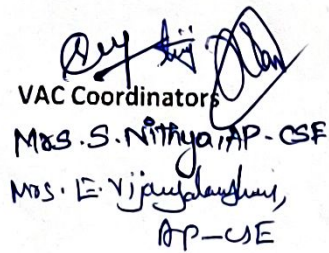 VAC Coordinators
Mrs. S. Nithya, AP-CSE
Mrs. E. Vijayalakshmi,
AP-CSE